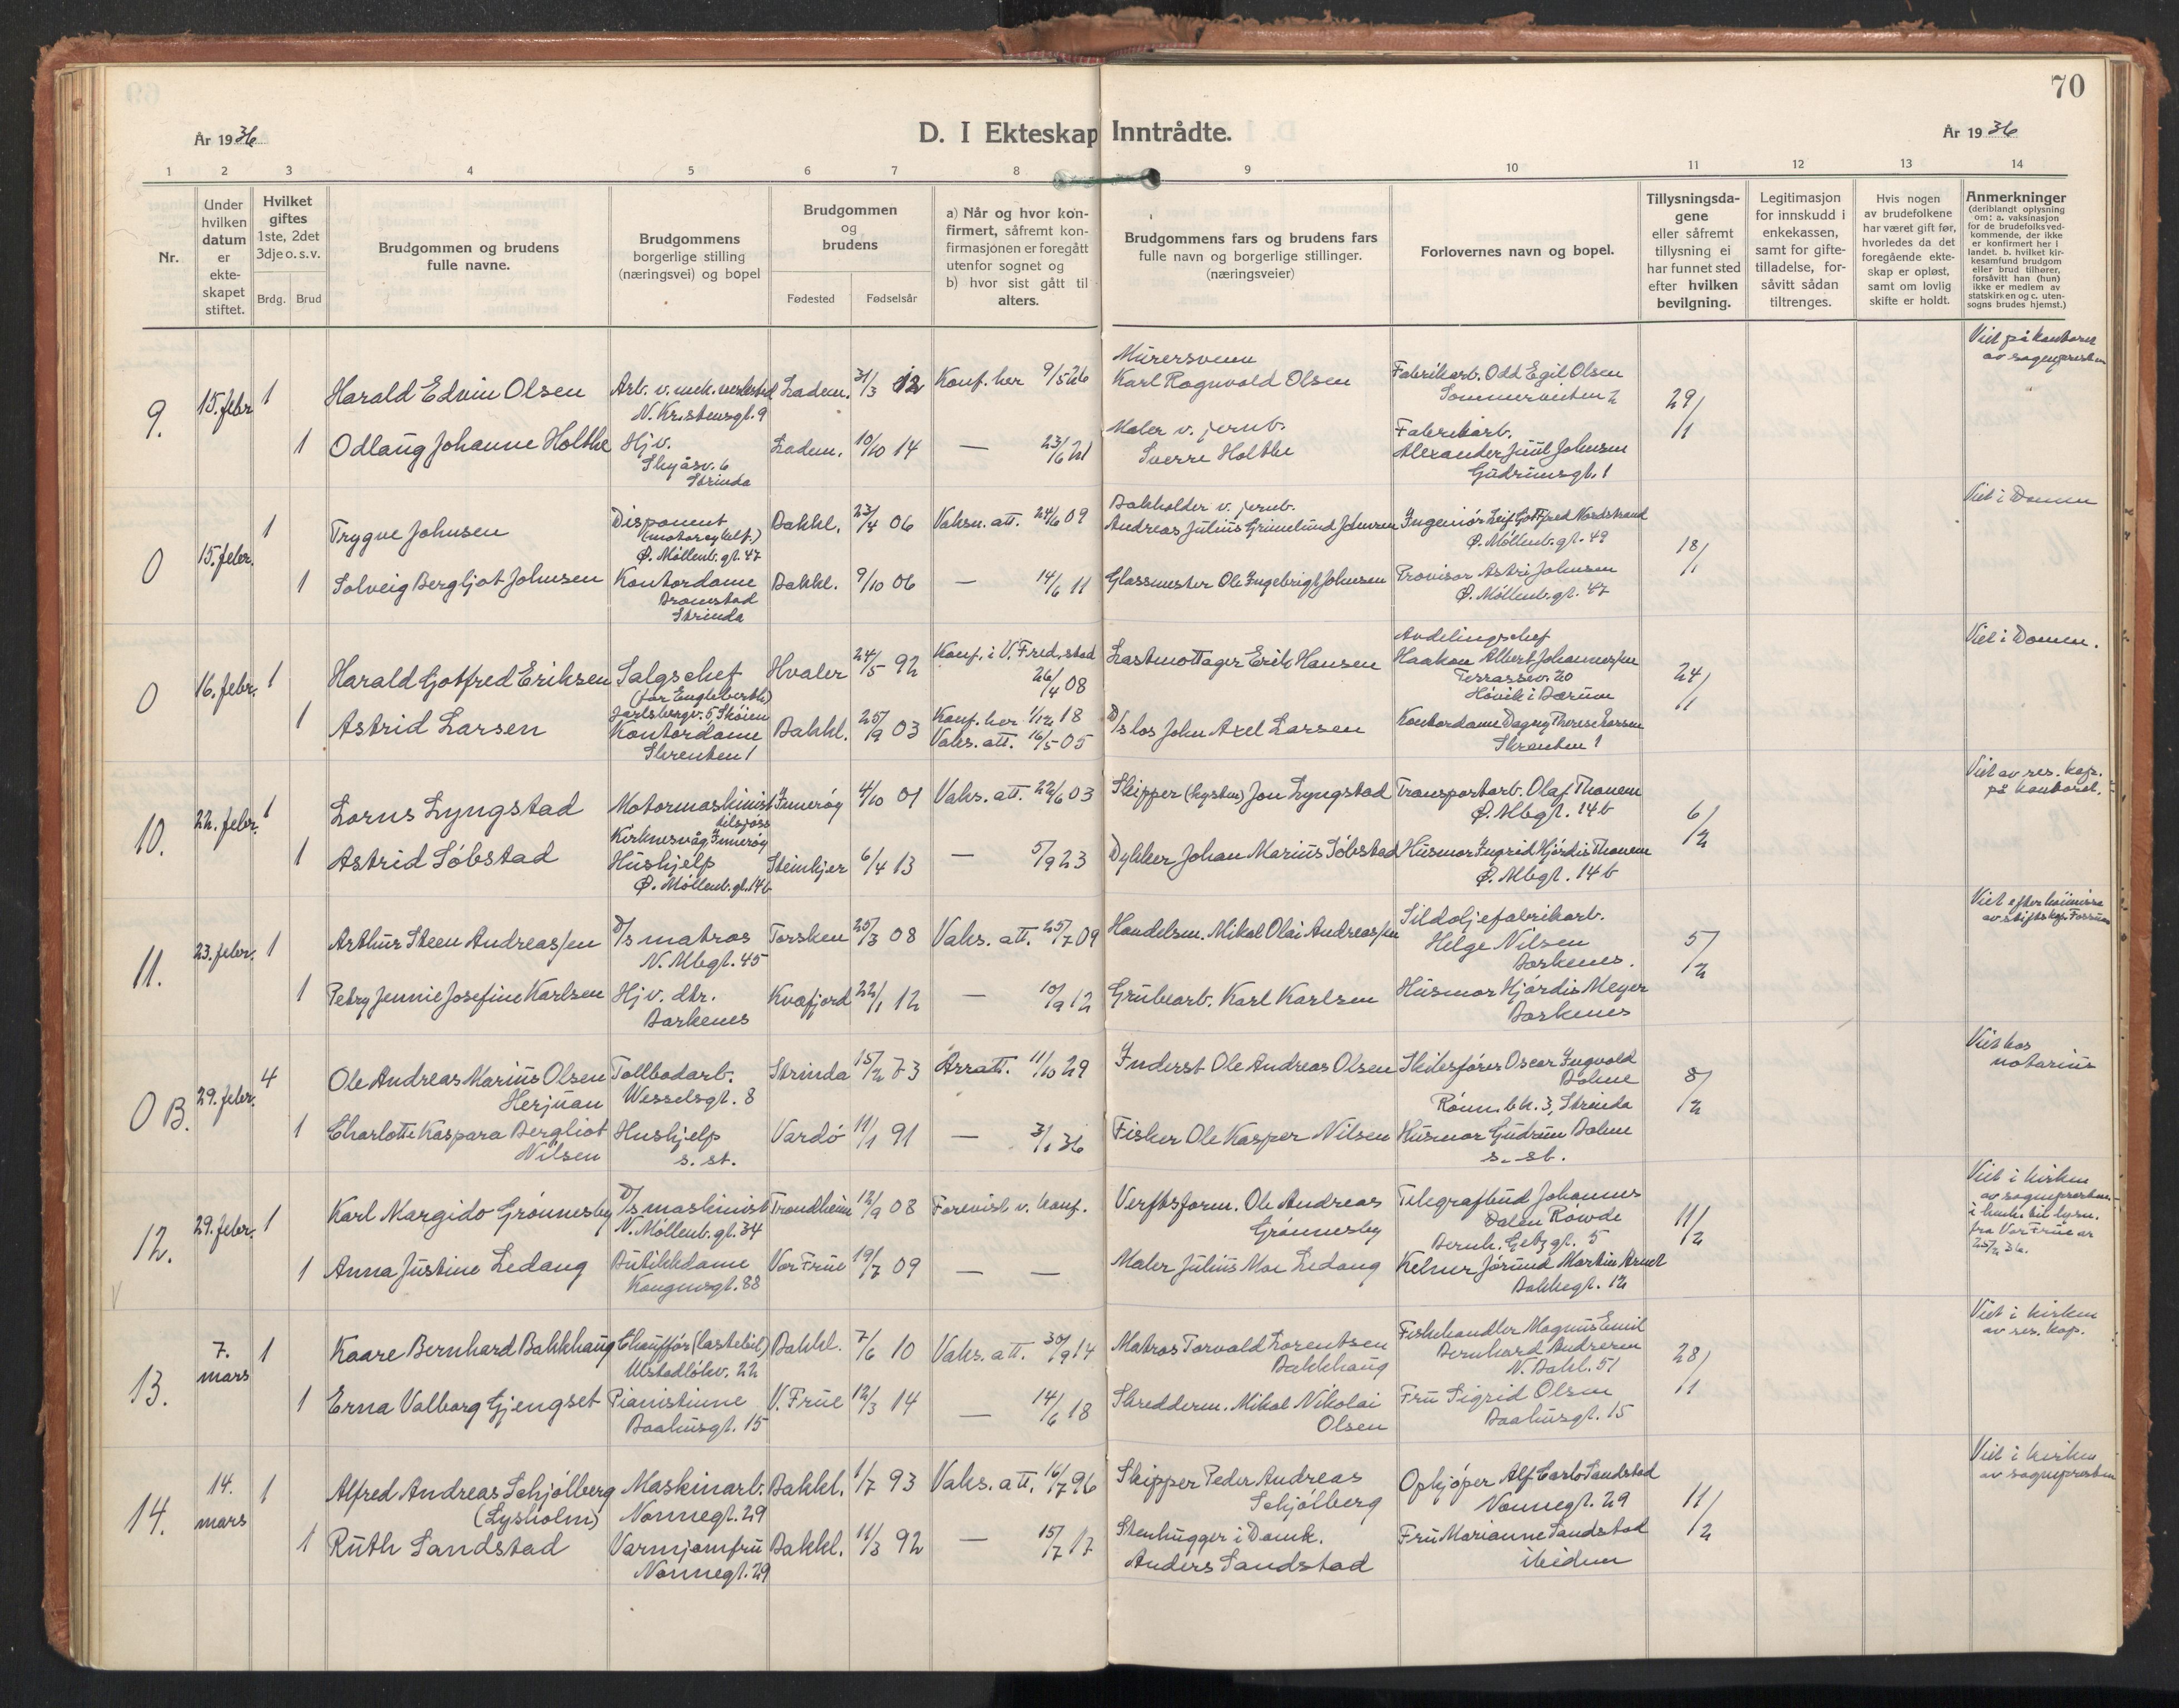 70
År 1936
D. I Ekteskap Inntrådte.
År 1936
1 2 3 4 5 6 7 8 9 10 11 12 13 14
Nr.
Under hvilken datum er ekteskapet stiftet.
Hvilket giftes 1ste, 2det 3dje o. s. v.
Brdg. Brud
Brudgommen og brudens fulle navne.
Brudgommens borgerlige stilling (næringsvei) og bopel
Brudgommen og brudens
Fødested Fødselsår
a) Når og hvor konfirmert, såfremt konfirmasjonen er foregått utenfor sognet og b) hvor sist gått til alters.
Brudgommens fars og brudens fars fulle navn og borgerlige stillinger. (næringsveier)
Forlovernes navn og bopel.
Tillysningsdagene eller såfremt tillysning ei har funnet sted efter hvilken bevilgning.
Legitimasjon for innskudd i enkekassen, samt for giftetilladelse, forsåvitt sådan tiltrenges.
Hvis nogen av brudefolkene har været gift før, hvorledes da det foregående ekteskap er opløst, samt om lovlig skifte er holdt.
Anmerkninger (deriblandt oplysning om: a. vaksinasjon for de brudefolksvedkommende, der ikke er konfirmert her i landet. b. hvilket kirkesamfund brudgom eller brud tilhører, forsåvitt han (hun) ikke er medlem av statskirken og c. utensogns brudes hjemst.)
9. 15. febr 1 Harald Edvin Olsen Arb. v. mek. verksted N. Kristensgt. 9 Ladem. 31/3 12 Konf. her 9/5 26 Murersvenn Karl Ragnvald Olsen Fabrikarb. Odd Egil Olsen 29/1 Viet på kontoret av sognepresten
1 Odlaug Johanne Holthe Hjv. Strinda Ladem. 10/10 14 — 23/6 21 Maler v. jernb. Sverre Holthe Fabrikarb. Alexander Juul Johnsen Gudrunsgt. 1
0 15. febr. 1 Trygve Johnsen Disponent (motorsykkelf.) Ø. Møllenb. gt. 47 Bakkl. 23/4 06 Vaksn. att. 24/6 09 Bokholder v. jernb. Andreas Julius Grimelund Johnsen Ingeniør Leif Gottfred Nordstrand Ø. Møllenb. gt. 49 18/1 Viet i Domen
1 Solveig Bergljot Johnsen Kontordame Strinda Bakkl. 9/10 06 — 14/6 11 Glassmester Ole Ingebrigt Johnsen Provisor Astri Johnsen Ø. Møllenb. gt. 47
0 16. febr. 1 Harald Gotfred Eriksen Salgschef Jarlsbergv. 5, Skøien Hvaler 24/5 92 Konf. i V. Fred.stad 26/4 08 Lastmottager Erik Hansen Avdelingschef Haakon Albert Johannessen Terrassev. 20 Høvik i Bærum 24/11 Viet i Domen.
1 Astrid Larsen Kontordame Skrenten 1 Bakkl. 25/9 03 Konf. her 1/12 18 Vaks. att. 16/5 05 D/s los John Axel Larsen Kontordame Dagny Therese Larsen Skrenten 1
10. 22. febr. 1 Lorns Lyngstad Motormaskinist tilsjøss Kirknesvåg, Inderøy Inderøy 4/10 01 Vaks. att. 22/6 03 Skipper (kysten) Jon Lyngstad Transportarb. Olaf Thanem Ø. Mbgt. 14 b 6/2 Viet av res. kap. på kontoret.
1 Astrid Søbstad Hushjelp Ø. Møllenb. gt. 14 b Steinkjer 6/4 13 — 5/9 23 Dykker Johan Marius Søbstad Husmor Ingrid Hjørdis Thanem Ø. Mbgt. 14 b
11. 23. febr. 1 Arthur Steen Andreassen D/s matros N. Mbgt. 45 Torsken 25/3 08 Vaks. att. 25/7 09 Handelsm. Mikal Olai Andreassen Sildoljefabrikarb. Helge Nilsen Borkenes. 5/2 Viet efter høimesse av stiftskap.
1 Petry Jennie Josefine Karlsen Hjv. dtr. Borkenes Kvæfjord 22/1 12 — 10/9 12 Grubearb. Karl Karlsen Husmor Hjørdis Meyer Borkenes
0 B. 29. febr. 4 Ole Andreas Marius Olsen Herjuan Tollbodarb. Wesselsgt. 8 Strinda 15/2 73 11/10 29 Inderst Ole Andreas Olsen Oscar Ingvald Dahne 3, Strinda 8/2 Viet hos notarius
1 Charlotte Kaspara Bergliot Nilsen Hushjelp s. st. Vardø 11/1 91 — 3/1 36 Fisker Ole Kasper Nilsen Husmor Gudrun Dahne s. st.
12. 29. febr. 1 Karl Margido Grønnesby D/s maskinist N. Møllenb. gt. 34 Trondheim 12/9 08 Forevist v. konf. Verftsform. Ole Andreas Grønnesby Telegrafbud Johannes Dalen Røwde Bernh. Getz gt. 5 11/2 Viet i kirken av sognepresten i henh. til lysn. fra Vor Frue av 25/2 36.
1 Anna Justine Ledang Butikkdame Kongensgt. 88 Vor Frue 19/7 09 — — Maler Julius Moe Ledang Kelner Jørund Martin Arnet Bakkegt. 12
13. 7. mars 1 Kaare Bernhard Bakkhaug Chauffør (lastebil) Ulstadløkv. 22 Bakkl. 7/6 10 Vaks. att. 30/9 14 Matros Torvald Lorentsen Bakkhaug Fiskehandler Magnus Emil Bernhard Andresen N. Bakl. 51 28/11 Viet i kirken av res. kap.
1 Erna Valborg Gjengset Pianistinne Baahusgt. 15 V. Frue 12/3 14 — 14/6 18 Skredderm. Mikal Nikolai Olsen Fru Sigrid Olsen Baahusgt. 15
14. 14. mars 1 Alfred Andreas Schjølberg (Lysholm) Maskinarb. Nonnegt. 29 Bakkl. 1/7 93 Vaks. att. 16/7 96 Skipper Peder Andreas Schjølberg Opkjøper Alf Carlo Sandstad Nonnegt. 29 11/2 Viet i kirken av sognepresten
1 Ruth Sandstad Varmjomfru Nonnegt. 29 Bakkl. 11/3 92 — 15/7 17 Stenhugger i Domk. Anders Sandstad Fru Marianne Sandstad ibidem